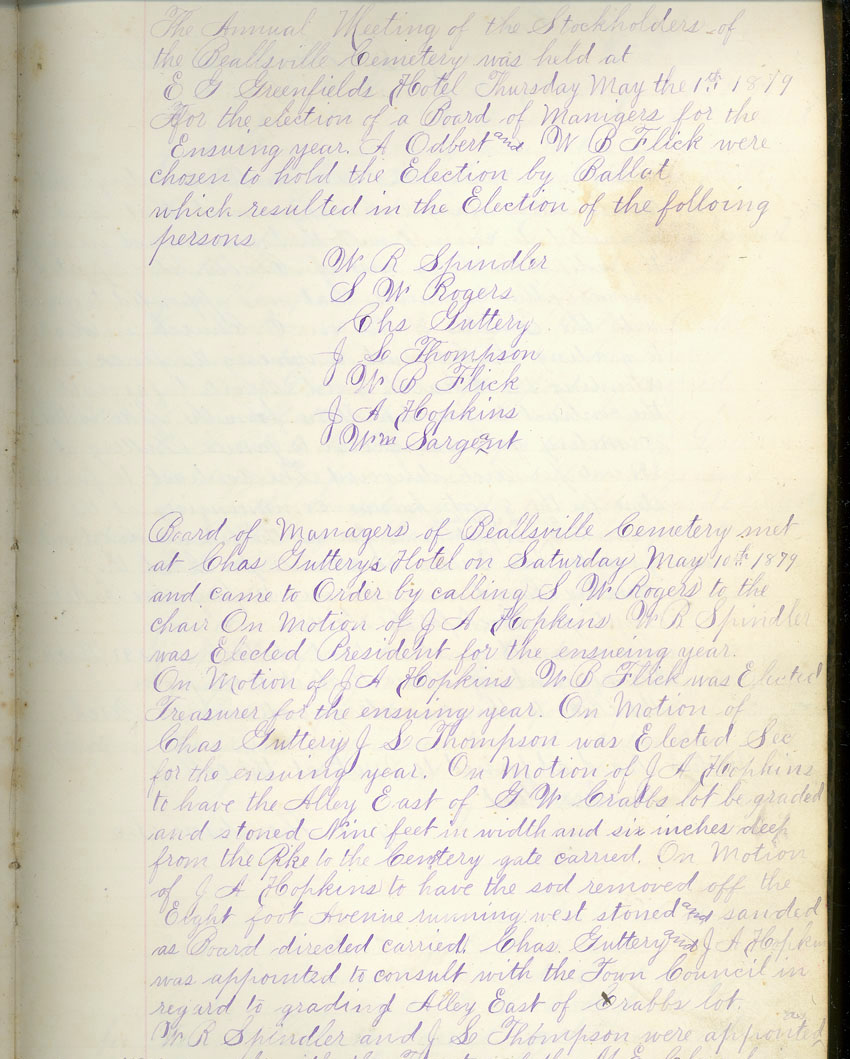 The Annual Meeting of the Stockholders of
the Beallsville Cemetery was held at
E G Greenfields Hotel Thursday May the 1st 1879
For the election of a Board of Manigers for the
Ensuing year. A Odbert and W B Flick were
chosen to hold the Election by Ballat
which resulted in the Election of the folloing
persons
W R Spindler
S W Rogers
Chs Guttery
J S Thompson
W B Flick
J A Hopkins
Wm Sargent
Board of Managers of Beallsville Cemetery met
at Chas Gutterys Hotel on Saturday May 10th 1879
and came to Order by calling S W Rogers to the
chair On Motion of J A Hopkins W R Spindler
was Elected President for the ensueing year.
On Motion of J A Hopkins W B Flick was Elected
Treasurer for the ensuing year. On Motion of
Chas Guttery J S Thompson was Elected Sec
for the ensuing year. On Motion of J A Hopkins
to have the Alley East of G W Crabbs lot be graded
and stoned Nine feet in width and six inches deep
from the Pike to the Cemetery gate carried. On Motion
of J A Hopkins to have the sod removed off the
Eight foot Avenue running west stoned and sanded
as Board directed carried. Chas. Guttery and J A Hopkins
was appointed to consult with the Town Council in
regard to grading Alley East of Crabbs lot.
W R Spindler and J S Thompson were appointed